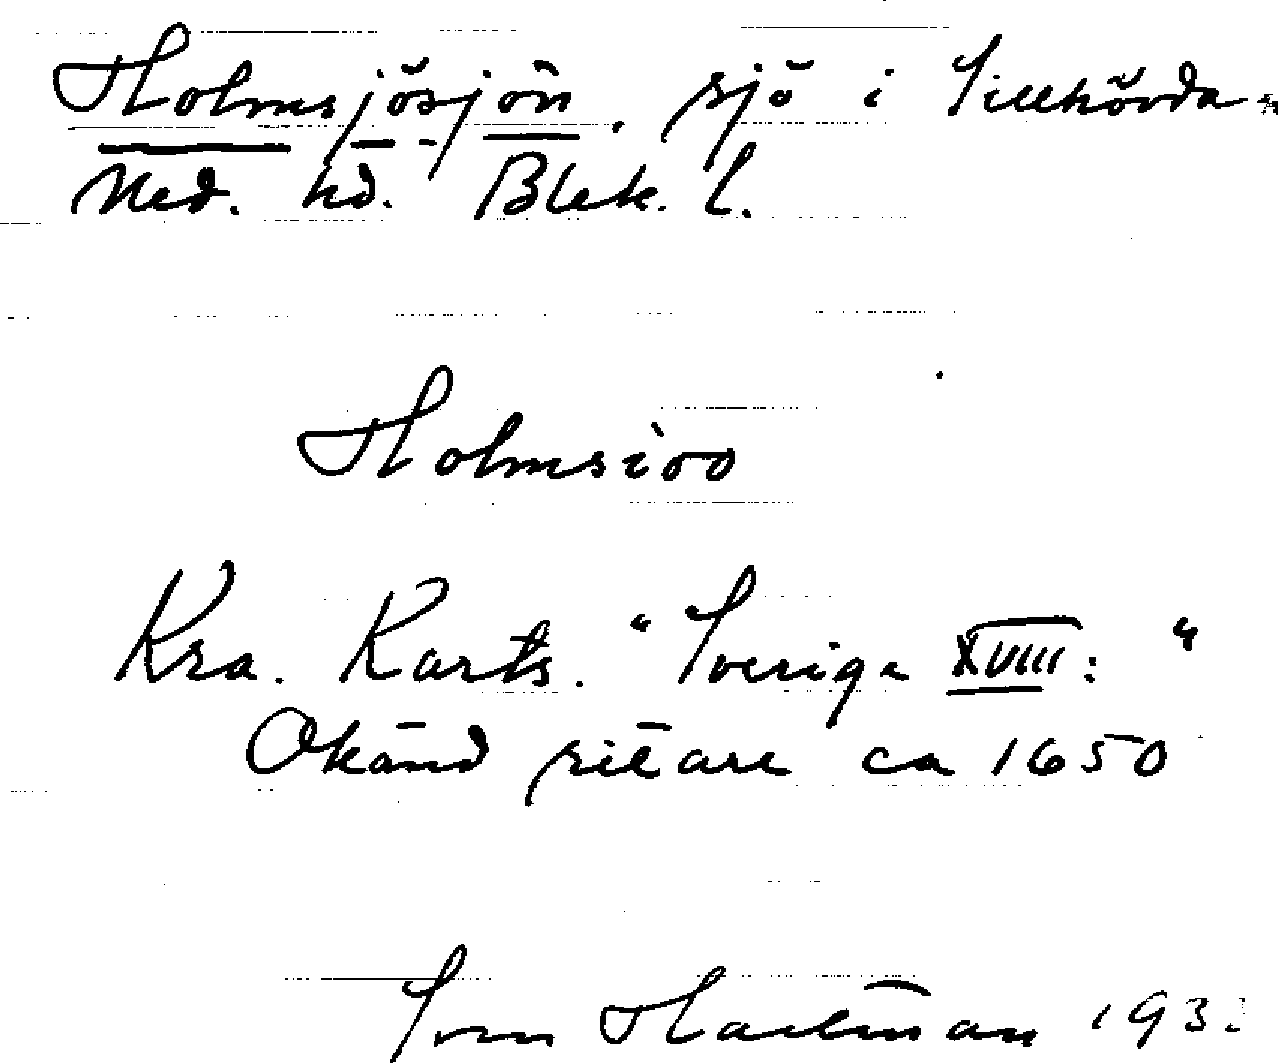 Holmsjösjön. sjö i Tillhövda
Med. hd. Blek. l.
Holmsioo
Kra. Karts. "Sverige XVIII: "
Okänd ritare ca 1650
Hartman 193